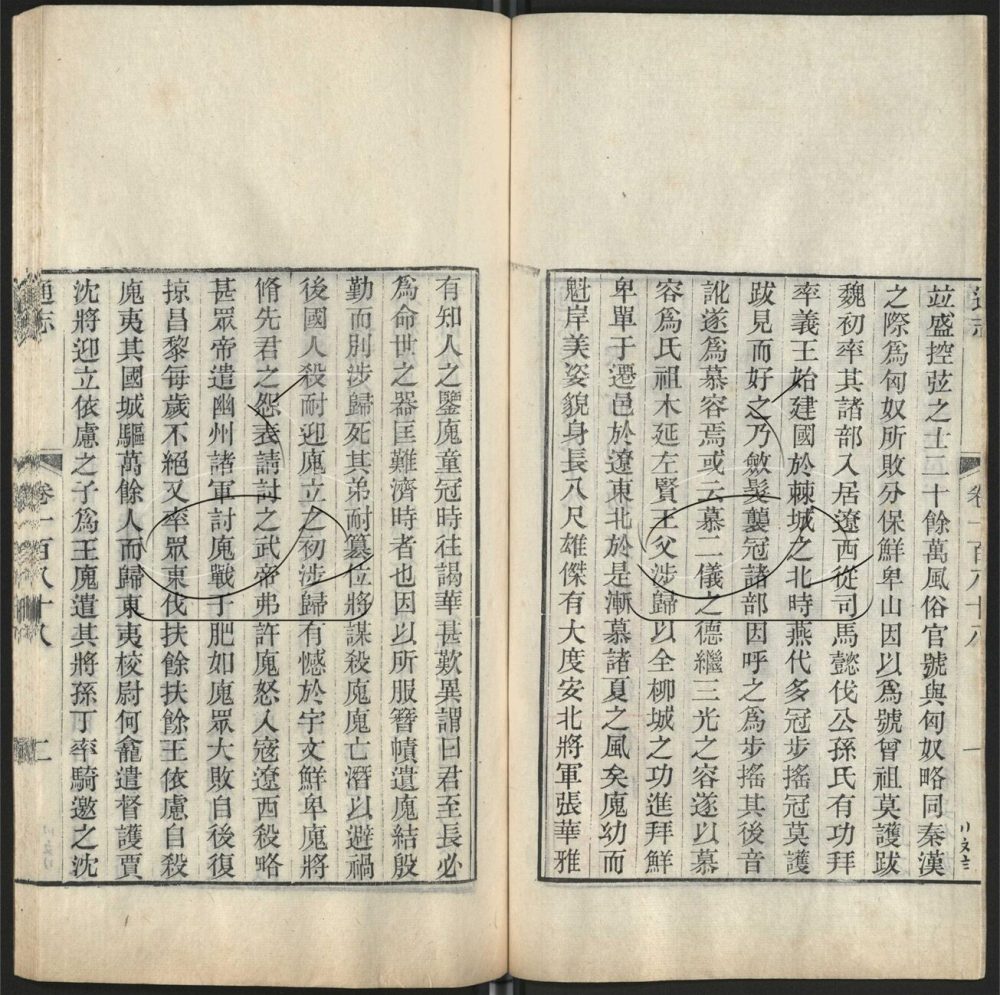 竝盛控弦之士二十餘萬風俗官號與匈奴略同秦漢
之際爲匈奴所敗分保鮮卑山因以爲號曾祖莫護跋
魏初率其諸部入居遼西從司馬懿伐公孫氏有功拜
率義王始建國於棘城之北時燕代多冠步搖冠莫護
跋見而好之乃斂髮襲冠諸部因呼之爲步搖其後音
訛遂爲慕容焉或云慕二儀之德繼三光之容遂以慕
容爲氏祖木延左賢王父涉歸以全柳城之功進拜鮮
卑單于遷邑於遼東北於是漸慕諸夏之風矣廆幼而
魁岸美姿貌身長八尺雄傑有大度安北將軍張華雅
有知人之鑒廆童冠時往謁華甚歎異謂曰君至長必
爲命世之器匡難濟時者也因以所服簪幘遺廆結殷
勤而別涉歸死其弟耐篡位將謀殺廆廆亡潛以避禍
後國人殺耐迎廆立之初涉歸有憾於宇文鮮卑廆將
脩先君之怨表請討之武帝弗許廆怒入寇遼西殺略
甚眾帝遣幽州諸軍討廆戰于肥如廆眾大敗自後復
掠昌黎每歲不絕又率眾東伐扶餘扶餘王依慮自殺
廆夷其國城驅萬餘人而歸東夷校尉何龕遣督護賈
沈將迎立依慮之子爲王廆遣其將孫丁率騎邀之沈
通志
卷一百八十八
二